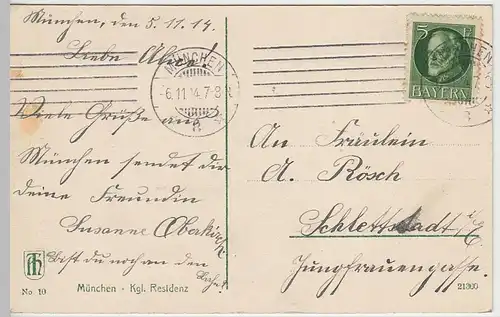 München, den 5.11.14.
Liebe
Viele Grüße aus
München sendet dir
deine Freundin
Susanne Oberkirch
Bist du noch an den
No 10
München - Kgl. Residenz
MÜNCHEN
6.11.14.7-8
8
5 Pf
BAYERN
MÜNCHEN
8
An Fräulein
A. Rösch
Schlettstadt i/E
Jungfrauengasse.
21300